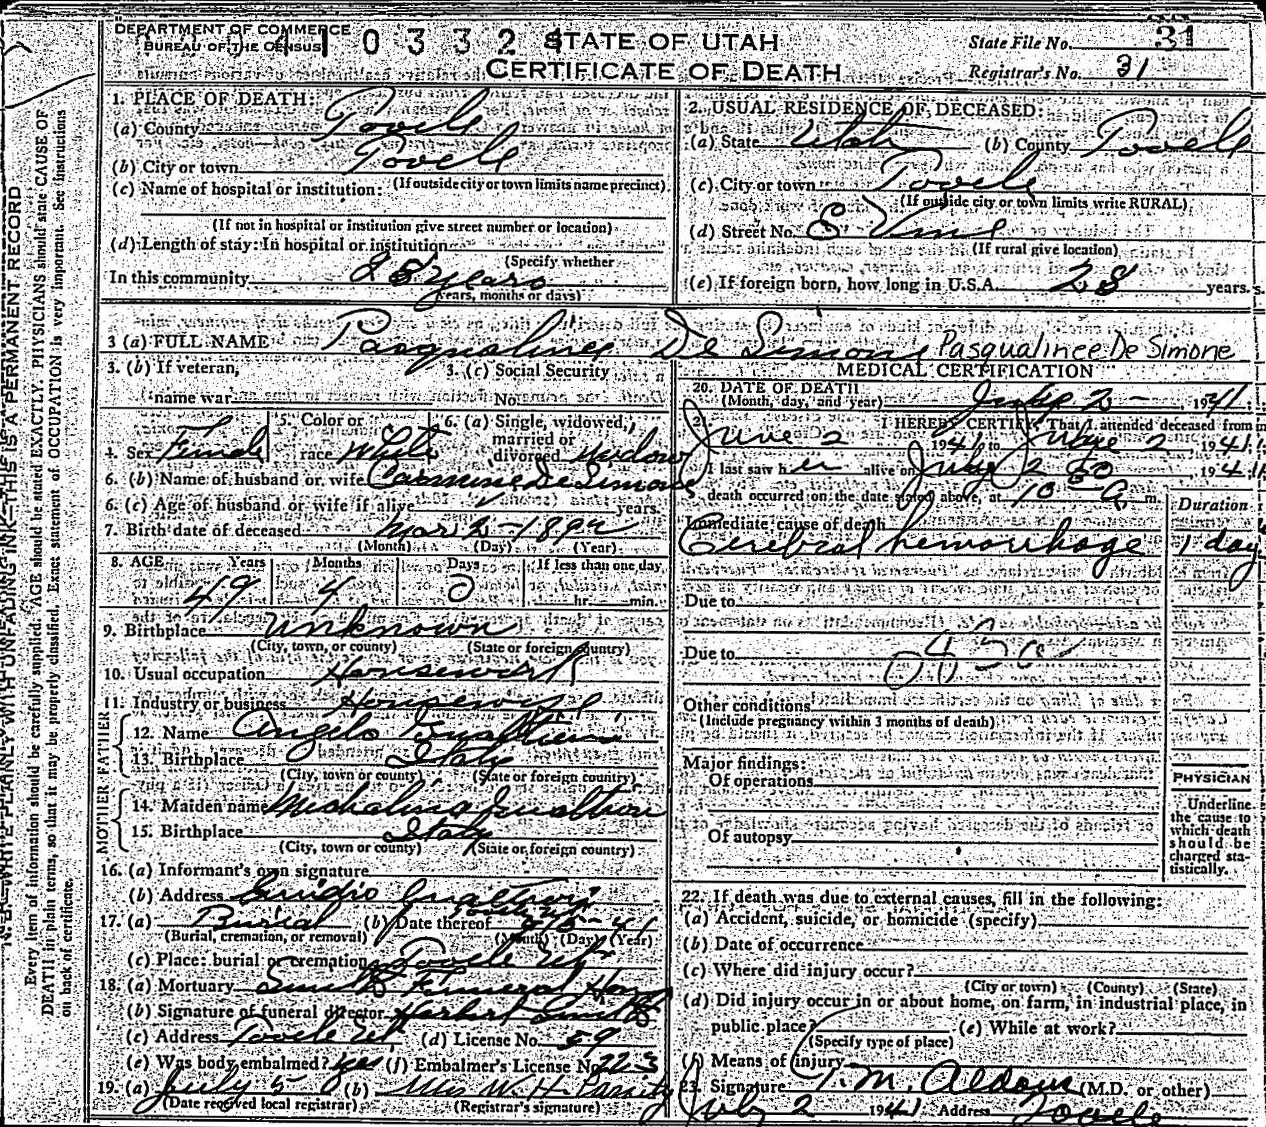 DEPARTMENT OF COMMERCE
BUREAU OF THE CENSUS
0 3 3 2
STATE OF UTAH
CERTIFICATE OF DEATH
State File No. 31
Registrar's No. 31
N.B.—WRITE PLAINLY WITH UNFADING INK—THIS IS A PERMANENT RECORD
Every item of information should be carefully supplied. AGE should be stated EXACTLY. PHYSICIANS should state CAUSE OF
DEATH in plain terms, so that it may be properly classified. Exact statement of OCCUPATION is very important. See instructions
on back of certificate.
1. PLACE OF DEATH:
(a) County Tooele
(b) City or town Tooele
(If outside city or town limits name precinct)
(c) Name of hospital or institution:
(If not in hospital or institution give street number or location)
(d) Length of stay: In hospital or institution
(Specify whether
In this community 28 years
years, months or days)
2. USUAL RESIDENCE OF DECEASED:
(a) State Utah (b) County Tooele
(c) City or town Tooele
(If outside city or town limits write RURAL)
(d) Street No. S. Vine
(If rural give location)
(e) If foreign born, how long in U.S.A. 28 years.
3 (a) FULL NAME Pasqualinee De Simone Pasqualinee De Simone
3. (b) If veteran,
name war
3. (c) Social Security
No.
4. Sex Female
5. Color or
race White
6. (a) Single, widowed,
married or
divorced Widow
6. (b) Name of husband or wife Carmine De Simone
6. (c) Age of husband or wife if alive years.
7. Birth date of deceased Mar 2 - 189
(Month) (Day) (Year)
8. AGE Years Months Days If less than one day
49 4 0 hr. min.
9. Birthplace Unknown
(City, town, or county) (State or foreign country)
10. Usual occupation Housework
11. Industry or business Housewife
FATHER
12. Name Angelo
13. Birthplace Italy
(City, town or county) (State or foreign country)
MOTHER
14. Maiden name
15. Birthplace Italy
(City, town or county) (State or foreign country)
16. (a) Informant's own signature
(b) Address
17. (a) Burial (b) Date thereof 41
(Burial, cremation, or removal) (Month) (Day) (Year)
(c) Place: burial or cremation Tooele Ut
18. (a) Mortuary Smith Funeral Home
(b) Signature of funeral director Herbert Smith
(c) Address Tooele Ut (d) License No. 59
(e) Was body embalmed? yes (f) Embalmer's License No. 223
19. (a) July 5 (b) Mrs W. H.
(Date received local registrar) (Registrar's signature)
MEDICAL CERTIFICATION
20. DATE OF DEATH
(Month, day, and year) July 2 - , 1941
I HEREBY CERTIFY, That I attended deceased from
June 2 1941 to 2, 1941
I last saw her alive on July 2 1941
death occurred on the date stated above, at 10 50 a m.
Duration
Immediate cause of death
Cerebral hemorrhage 1 day
Due to
Due to
Other conditions
(Include pregnancy within 3 months of death)
Major findings:
Of operations
Of autopsy
PHYSICIAN
Underline
the cause to
which death
should be
charged sta-
tistically.
22. If death was due to external causes, fill in the following:
(a) Accident, suicide, or homicide (specify)
(b) Date of occurrence
(c) Where did injury occur?
(City or town) (County) (State)
(d) Did injury occur in or about home, on farm, in industrial place, in
public place? (e) While at work?
(Specify type of place)
(f) Means of injury
23. Signature T. M. Aldous (M.D. or other)
July 2 1941 Address Tooele